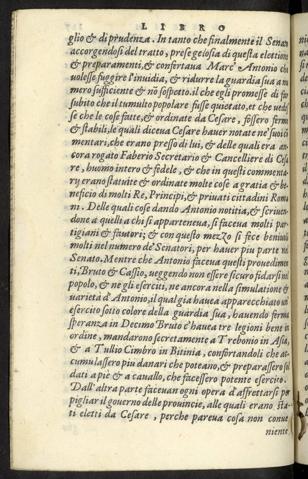 LIBRO
glio & di prudenza. In tanto che finalmente il Senato
accorgendosi del tratto, prese gelosia di questa elettione
& preparamenti, & confortaua Marc' Antonio che
uolesse fuggire l'inuidia, & ridurre la guardia sua a nu
mero sufficiente & nõ sospetto. il che egli promesse di far
subito che il tumulto popolare fusse quietato, et che uedes
se che le cose fatte, & ordinate da Cesare, fossero ferme
& stabili, le quali diceua Cesare hauer notate ne' suoi cõ
mentari, che erano presso di lui, & delle quali era an-
cora rogato Faberio Secretario & Cancelliere di Cesa
re, huomo intero & fidele, & che in questi commenta-
ry erano statuite & ordinate molte cose a gratia & be-
neficio di molti Re, Principi, & priuati cittadini Roma
ni. Delle quali cose dando Antonio notitia, & scriuen-
done a quelli a chi si apparteneua, si faceua molti par-
tigiani & fautori; & con questo mezo si fece beniuoli
molti nel numero de' Senatori, per hauer piu parte nel
Senato. Mentre che Antonio faceua questi prouedimen
ti, Bruto & Cassio, ueggendo non essere sicuro fidarsi nel
popolo, & ne gli eserciti, ne ancora nella simulatione &
uarietà d'Antonio, il qual gia haueua apparecchiato un'
esercito sotto colore della guardia sua, hauendo ferma
speranza in Decimo Bruto c'hauea tre legioni bene in
ordine, mandarono secretamente a Trebonio in Asia,
& a Tullio Cimbro in Bitinia, confortandoli che ac-
cumulassero piu danari che poteano, & preparassero sol
dati a piè & a cauallo, che facessero potente esercito.
Dall'altra parte faceuan ogni opera d'affrettarsi per
pigliar il gouerno delle prouincie, alle quali erano sta-
ti eletti da Cesare, perche pareua cosa non conue
niente